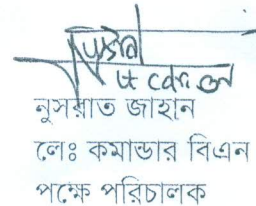 নুসরাত জাহান
লেঃ কমান্ডার বিএন
পক্ষে পরিচালক